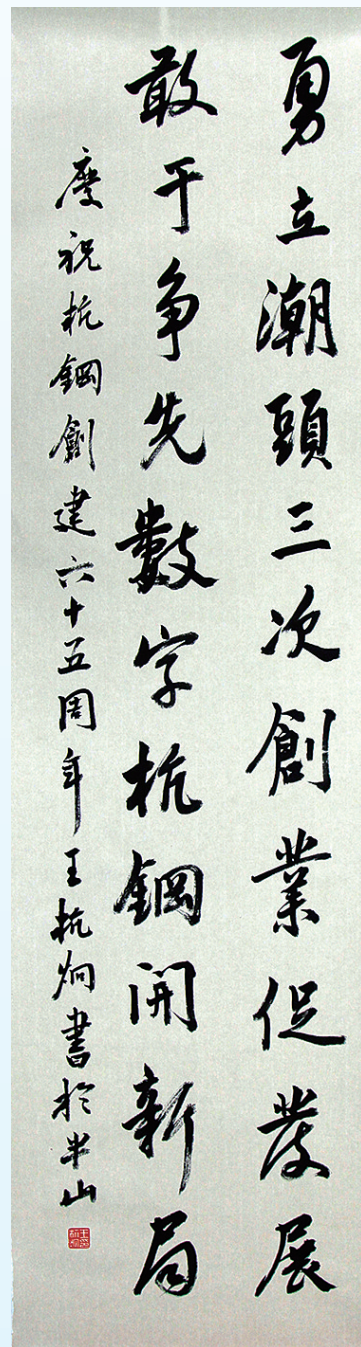 勇立潮頭三次創業促發展
敢于争先數字杭鋼開新局
慶祝杭鋼創建六十五周年王杭炯書於半山